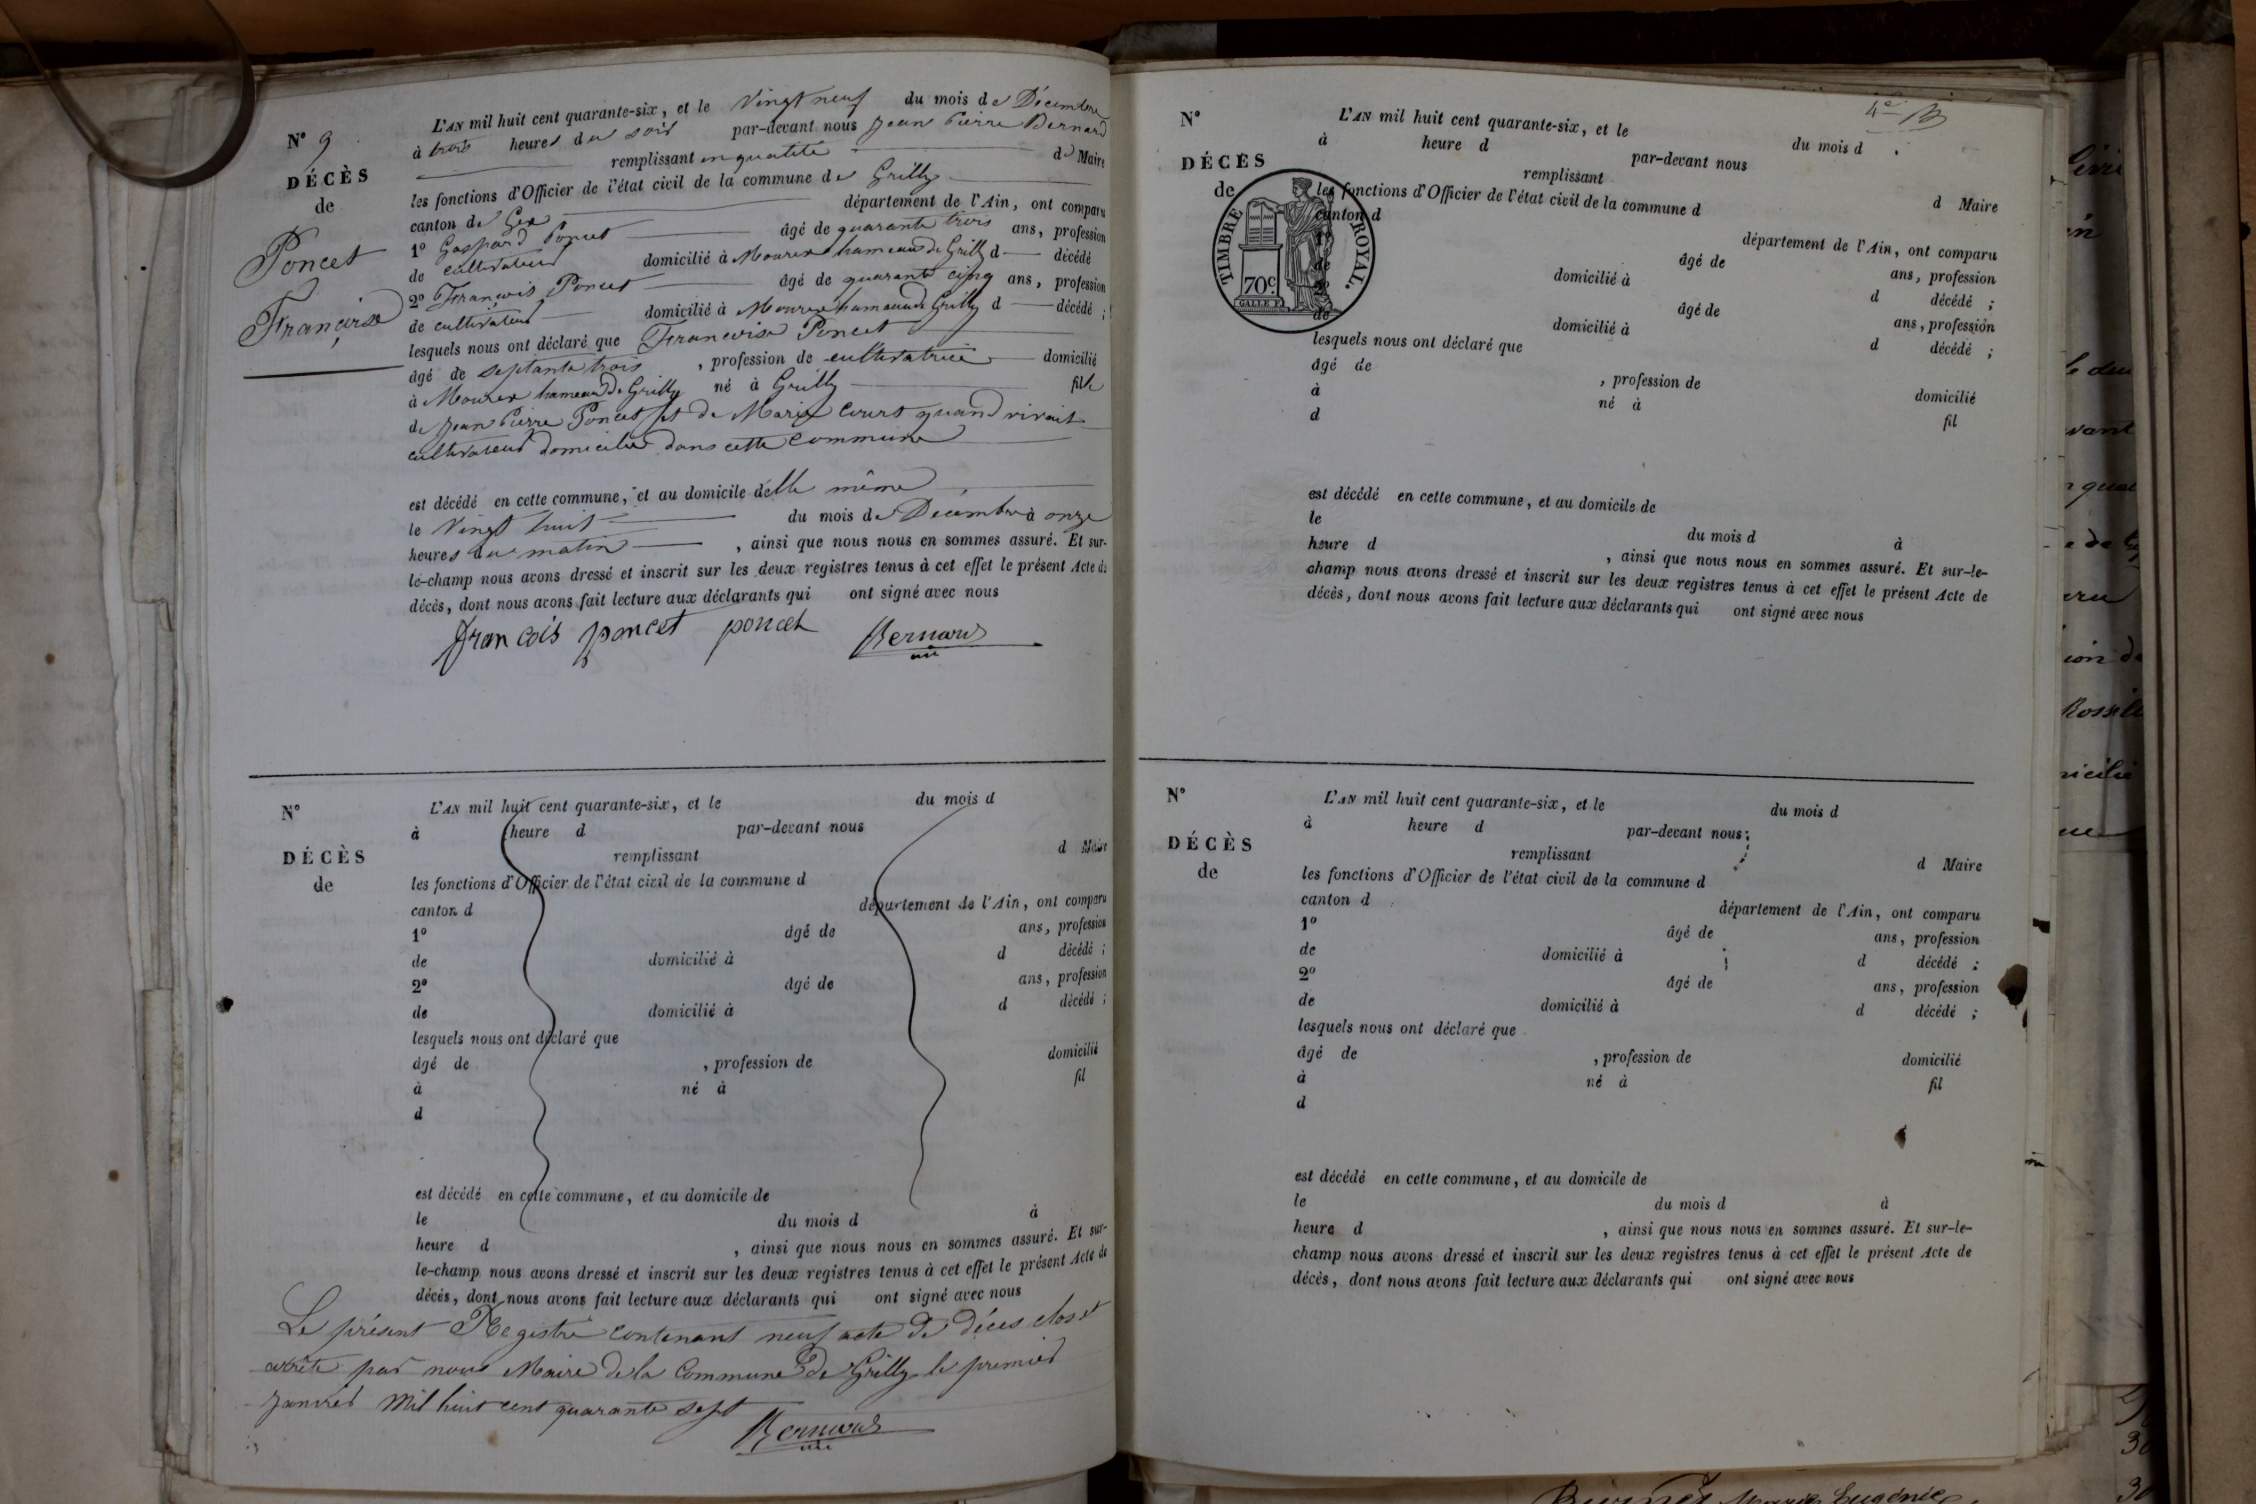 N° 9
DÉCÈS
de
Poncet
Françoise
L'AN mil huit cent quarante-six, et le Vingt neuf du mois de Décembre
à trois heures du soir par-devant nous Jean Pierre Bernard
remplissant en qualité de Maire
les fonctions d'Officier de l'état civil de la commune de Grilly
canton de Gex département de l'Ain, ont comparu
1° Gaspard Poncet âgé de quarante trois ans, profession
de cultivateur domicilié à Mourex hameau de Grilly d décédé
2° François Poncet âgé de quarante cinq ans, profession
de cultivateur domicilié à Mourex hameau de Grilly d décédé ;
lesquels nous ont déclaré que Francoise Poncet
âgé de septante trois , profession de cultivatrice domicilié
à Mourex hameau de Grilly né à Grilly fille
de Jean Pierre Poncet et de Marie Court quand vivait
cultivateur domicilié dans cette Commune
est décédé en cette commune, et au domicile d'elle même
le Vingt huit du mois de Décembre à onze
heures du matin , ainsi que nous nous en sommes assuré. Et sur-
le-champ nous avons dressé et inscrit sur les deux registres tenus à cet effet le présent Acte de
décès, dont nous avons fait lecture aux déclarants qui ont signé avec nous
francois poncet poncet Bernard
N°
DÉCÈS
de
L'AN mil huit cent quarante-six, et le du mois d
à heure d par-devant nous
remplissant d Maire
les fonctions d'Officier de l'état civil de la commune d
canton d département de l'Ain, ont comparu
1° âgé de ans, profession
de domicilié à d décédé ;
2° âgé de ans, profession
de domicilié à d décédé ;
lesquels nous ont déclaré que
âgé de , profession de domicilié
à né à fil
d
est décédé en cette commune, et au domicile de
le du mois d à
heure d , ainsi que nous nous en sommes assuré. Et sur-
le-champ nous avons dressé et inscrit sur les deux registres tenus à cet effet le présent Acte de
décès, dont nous avons fait lecture aux déclarants qui ont signé avec nous
Le présent Registre contenant neuf acte de décès clos et
arrêté par nous Maire de la Commune de Grilly le premier
janvier mil huit cent quarante sept
Bernard
4e
N°
DÉCÈS
de
TIMBRE ROYAL.
70c.
L'AN mil huit cent quarante-six, et le du mois d
à heure d par-devant nous
remplissant d Maire
les fonctions d'Officier de l'état civil de la commune d
canton d département de l'Ain, ont comparu
1° âgé de ans, profession
de domicilié à d décédé ;
2° âgé de ans, profession
de domicilié à d décédé ;
lesquels nous ont déclaré que
âgé de , profession de domicilié
à né à fil
d
est décédé en cette commune, et au domicile de
le du mois d à
heure d , ainsi que nous nous en sommes assuré. Et sur-le-
champ nous avons dressé et inscrit sur les deux registres tenus à cet effet le présent Acte de
décès, dont nous avons fait lecture aux déclarants qui ont signé avec nous
N°
DÉCÈS
de
L'AN mil huit cent quarante-six, et le du mois d
à heure d par-devant nous
remplissant d Maire
les fonctions d'Officier de l'état civil de la commune d
canton d département de l'Ain, ont comparu
1° âgé de ans, profession
de domicilié à d décédé ;
2° âgé de ans, profession
de domicilié à d décédé ;
lesquels nous ont déclaré que
âgé de , profession de domicilié
à né à fil
d
est décédé en cette commune, et au domicile de
le du mois d à
heure d , ainsi que nous nous en sommes assuré. Et sur-le-
champ nous avons dressé et inscrit sur les deux registres tenus à cet effet le présent Acte de
décès, dont nous avons fait lecture aux déclarants qui ont signé avec nous